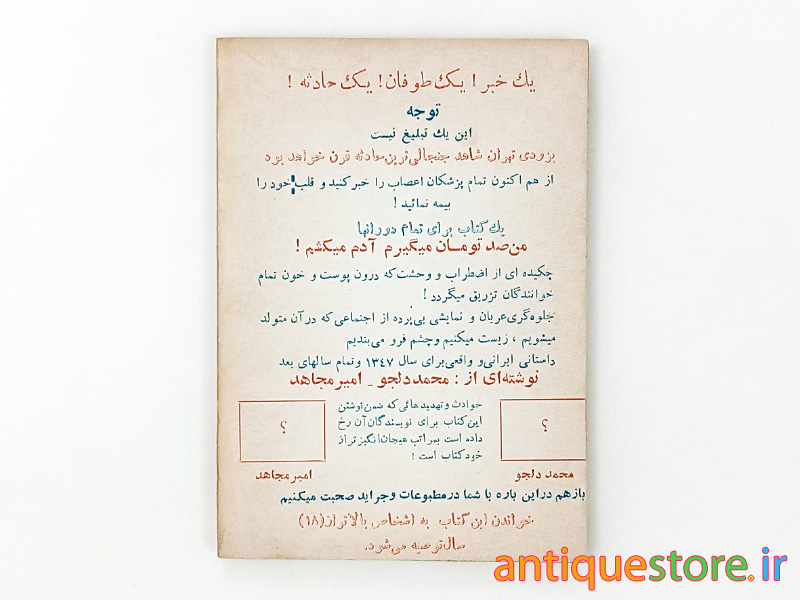 يك خبر! يك طوفان! يك حادثه!
توجه
اين يك تبليغ نيست
بزودی تهران شاهد جنجالی‌ترين حادثه قرن خواهد بود
از هم اكنون تمام پزشكان اعصاب را خبر كنيد و قلب خود را
بيمه نمائيد!
يك كتاب برای تمام دورانها
من صد تومان ميگيرم آدم ميكشم!
چكيده ای از اضطراب و وحشت كه درون پوست و خون تمام
خوانندگان تزريق ميگردد!
جلوه‌گری عريان و نمايشی بی‌پرده از اجتماعی كه در آن متولد
ميشويم، زيست ميكنيم و چشم فرو می‌بنديم
داستانی ايرانی و واقعی برای سال ۱۳۴۷ و تمام سالهای بعد
نوشته‌ای از: محمد دلجو - امير مجاهد
حوادث و تهديدهائی كه ضمن نوشتن
اين كتاب برای نويسندگان آن رخ
داده است بمراتب هيجان‌انگيزتر از
خود كتاب است!
؟
؟
محمد دلجو
امير مجاهد
باز هم در اين باره با شما در مطبوعات و جرايد صحبت ميكنيم
خواندن اين كتاب به اشخاص بالاتر از (۱۸)
سال توصيه می‌شود.
antiquestore.ir